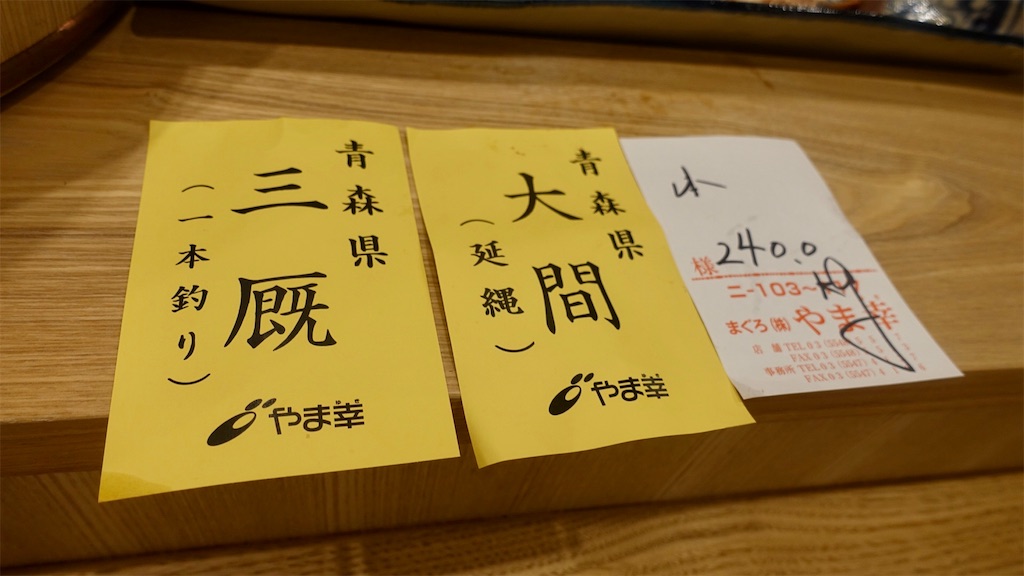 青森県
三厩
（一本釣り）
やま幸
青森県
大間
（延縄）
やま幸
小
240.0
様
ニ-103~
まぐろ(株)やま幸
店舗 TEL 03 (55
FAX 03 (5548)
事務所 TEL 03 (5547)
FAX 03 (5547)